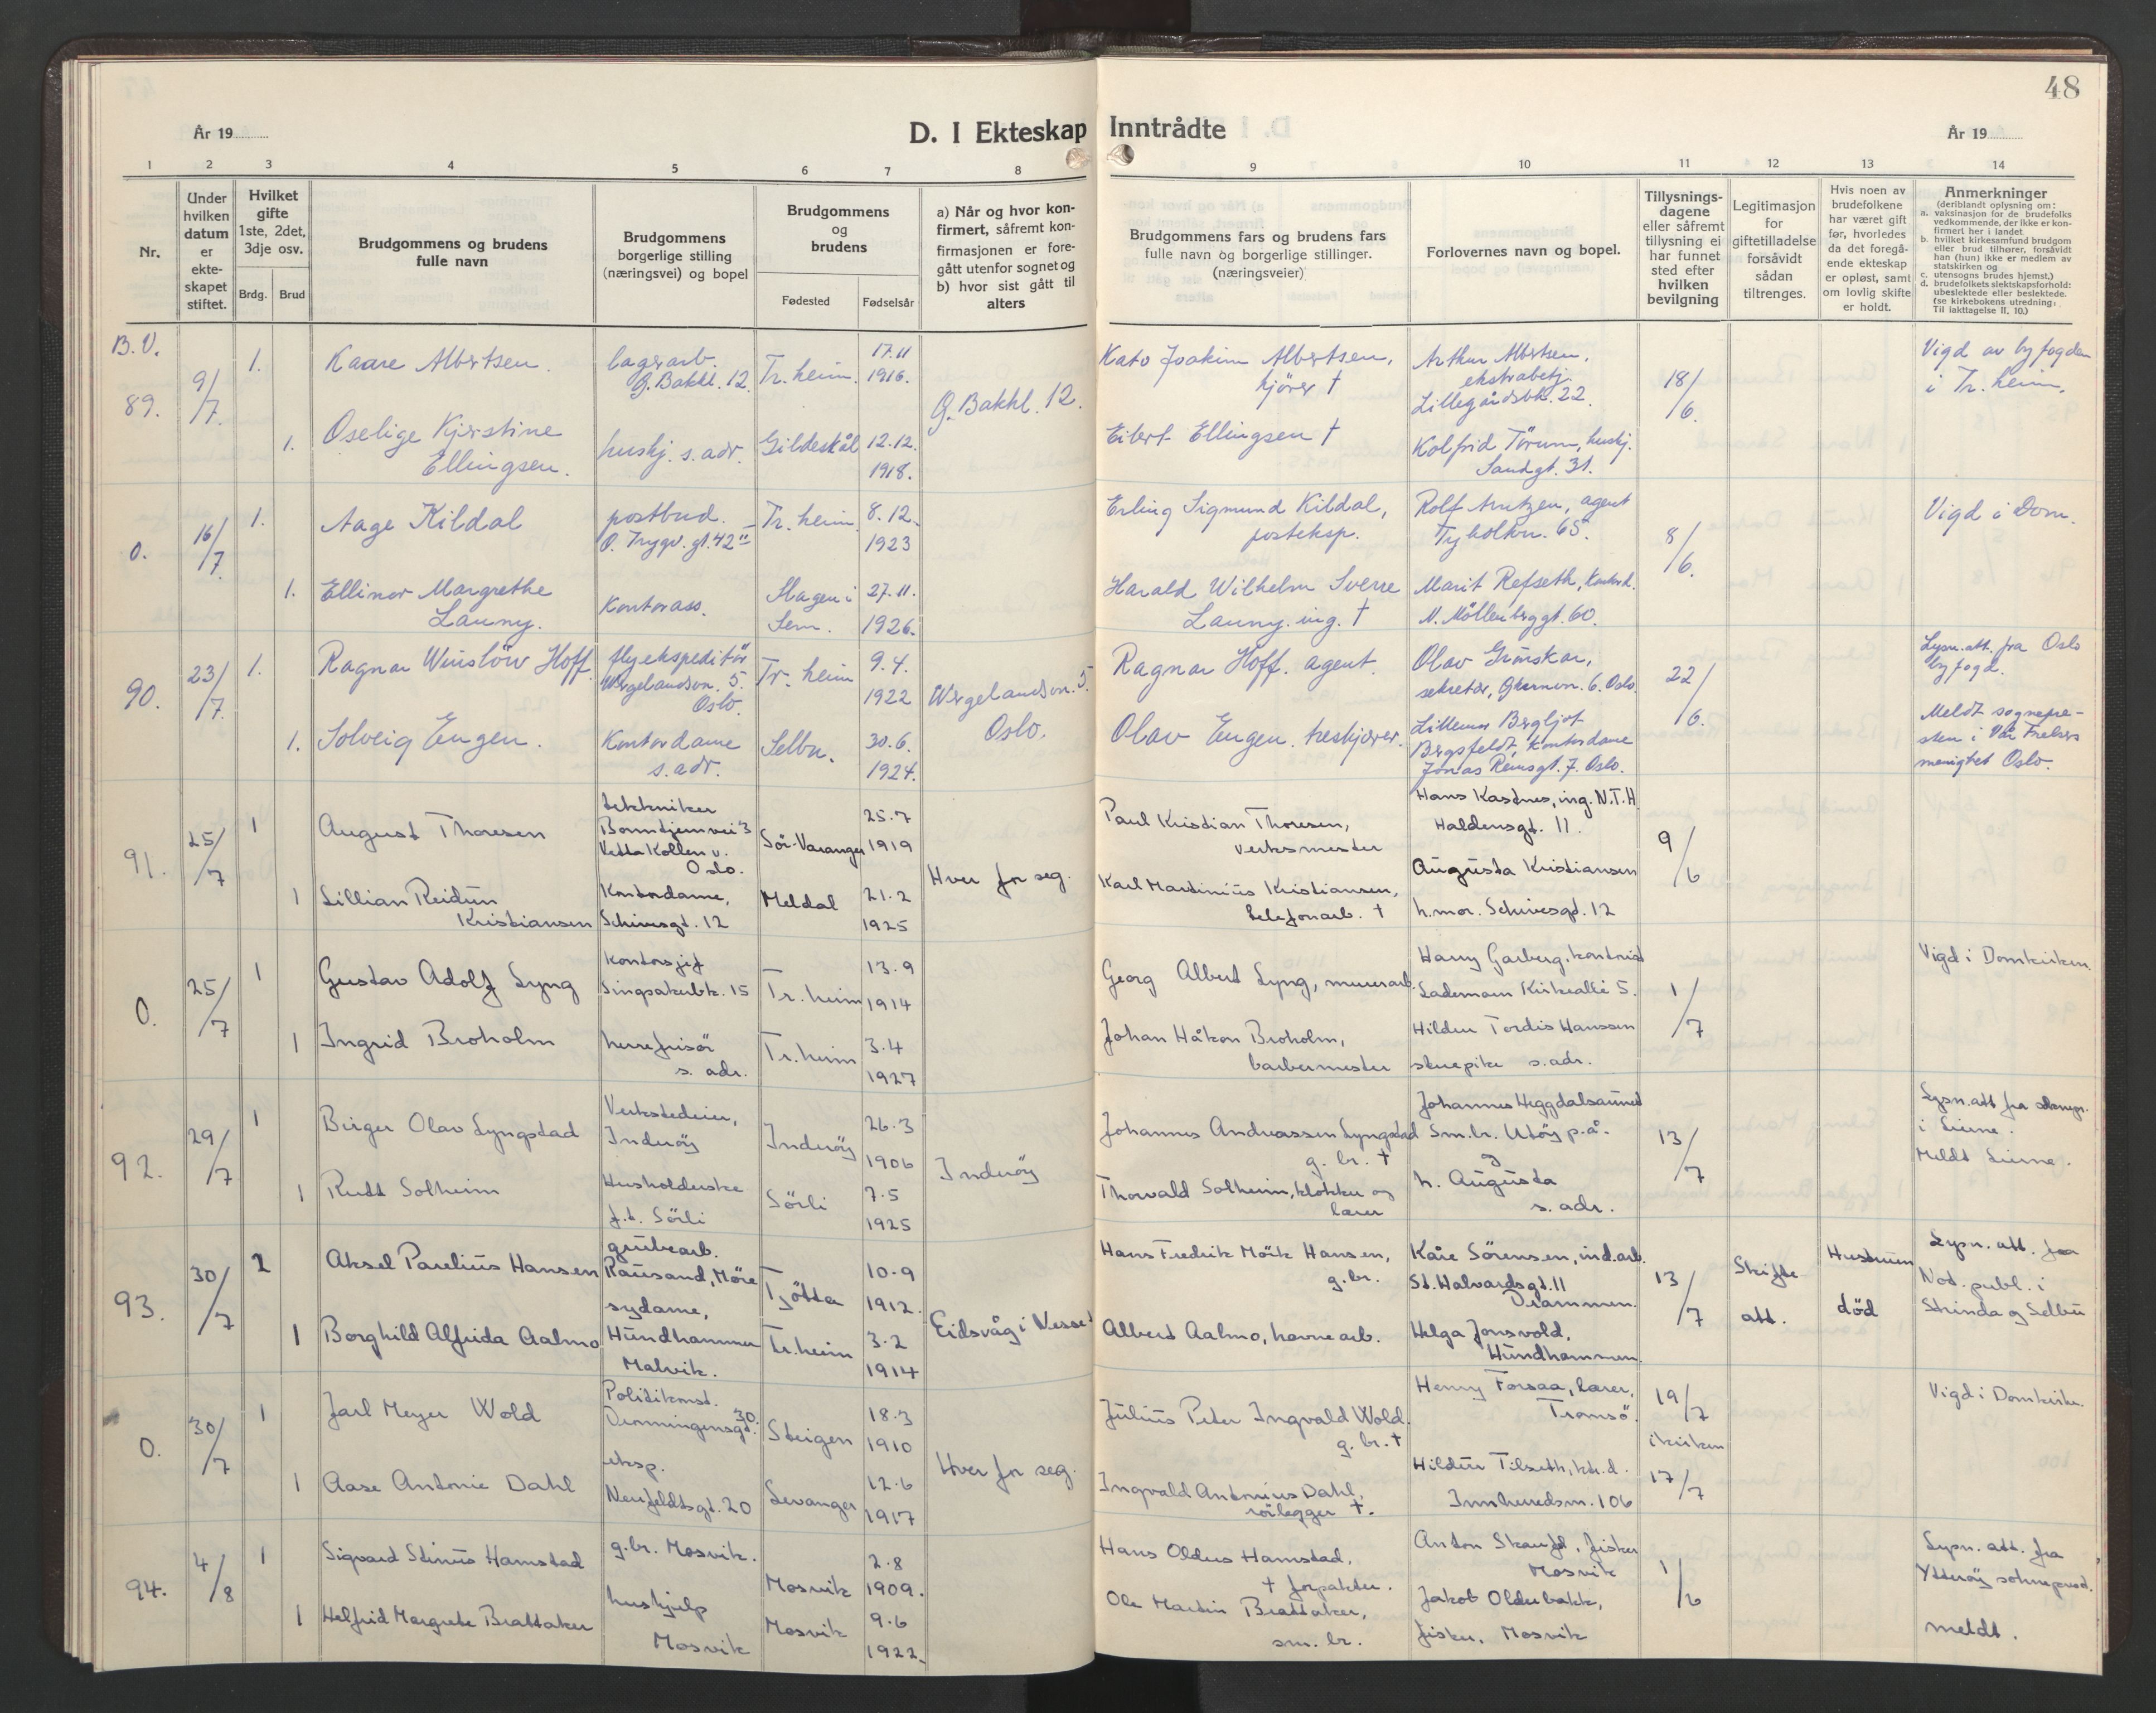 48
År 19
D. I Ekteskap Inntrådte
År 19
1 2 3 4 5 6 7 8 9 10 11 12 13 14
Nr.
Under hvilken datum er ekte-skapet stiftet.
Hvilket gifte 1ste, 2det, 3dje osv.
Brdg. Brud
Brudgommens og brudens fulle navn
Brudgommens borgerlige stilling (næringsvei) og bopel
Brudgommens og brudens
Fødested Fødselsår
a) Når og hvor kon-firmert, såfremt kon-firmasjonen er fore-gått utenfor sognet og
b) hvor sist gått til alters
Brudgommens fars og brudens fars fulle navn og borgerlige stillinger. (næringsveier)
Forlovernes navn og bopel.
Tillysnings-dagene eller såfremt tillysning ei har funnet sted efter hvilken bevilgning
Legitimasjon for giftetilladelse forsåvidt sådan tiltrenges.
Hvis noen av brudefolkene har været gift før, hvorledes da det foregå-ende ekteskap er opløst, samt om lovlig skifte er holdt.
Anmerkninger
(deriblandt oplysning om:
a. vaksinasjon for de brudefolks vedkommende, der ikke er kon-firmert her i landet.
b. hvilket kirkesamfund brudgom eller brud tilhører, forsåvidt han (hun) ikke er medlem av statskirken og
c. utensogns brudes hjemst.)
d. brudefolkets slektskapsforhold: ubeslektede eller beslektede. (se kirkebokens utredning: Til iakttagelse II, 10.)
B.V.
89. 9/7. 1. Kaare Albertsen. lagerarb. Ø. Bakkl. 12. Tr. heim. 17.11 1916. Ø. Bakkl. 12. Kato Joakim Albertsen, kjører † Arthur Albertsen, ekstrabetj. Lillegårdsbk. 22. 18/6. Vigd av byfogden i Tr. heim.
1. Oselige Kjerstine Ellingsen. huskj. s. adr. Gildeskål 12.12. 1918. Eilert Ellingsen † Kolfrid Törum, huskj. Sandgt. 31.
0. 16/7. 1. Aage Kildal postbud. O. Trygv. gt. 42 Tr. heim 8.12. 1923 Erling Sigmund Kildal, posteksp. Rolf Arntzen, agent Tyholtvn. 65. 8/6. Vigd i Dom.
1. Ellinor Margrethe Launy. Kontorass. Slagen i Sem. 27.11. 1926. Harald Wilhelm Sverre Launy. ing. † Marit Refseth, Kontord. N. Möllenberggt. 60.
90. 23/7. 1. Ragnar Winslöw Hoff. flyekspeditör Wergelandsvn. 5. Oslo. Tr. heim 9.4. 1922 Wergelandsvn. 5. Oslo. Ragnar Hoff. agent. Olav Grimskar, sekretær, 6. Oslo. 22/6. Lysn. att. fra Oslo byfogd.
1. Solveig Eugen. Kontordame s. adr. Selbu. 30.6. 1924. Olav Eugen. treskjærer. Lillemor Bergljot Bergsfeldt, kontordame Jonas Reinsgt. 7. Oslo. Meldt sognepre-sten i Vår Frelsers menighet Oslo.
91. 25/7 1 August Thoresen tekkniker Bonntjernvei 3 Vettakollen v. Oslo. Sör-Varanger 25.7 1919 Hver for seg. Paul Kristian Thoresen, verksmester Hans Kastnes, ing. N.T.H. Haldensgt. 11. 9/6
1 Lillian Reidun Kristiansen Kontordame, Schivesgt. 12 Meldal 21.2 1925 Karl Martinius Kristiansen, telefonarb. † Augusta Kristiansen h. mor. Schivesgt. 12
0. 25/7 1 Gustav Adolf Lyng Kontorsjef Singsakerbk. 15 Tr. heim 13.9 1914 Georg Albert Lyng, murerarb. Harry Garberg, kontorist Lademoen Kirkeallé 5. 1/7 Vigd i Domkirken.
1 Ingrid Broholm herrefrisör s. adr. Tr. heim 3.4 1927 Johan Håkon Broholm, barbermester Hildur Tordis Hanssen stuepike s. adr.
92. 29/7 1 Birger Olav Lyngstad Verkstedeier, Inderöy Inderöy 26.3 1906 Inderöy Johannes Andreassen Lyngstad g. br. † Johannes Heggdalsaunet Sm. br. Utöy p.å. 13/7 Lysn. att fra sokneprs. i Lierne. Meldt Lierne.
1 Rutt Solheim Husholderske f.t. Sörli Sörli 7.5 1925 Thorvald Solheim, klokker og lærer og h. Augusta s. adr.
93. 30/7 2 Aksel Parelius Hansen grubearb. Rausand, Möre Tjötta 10.9 1912. Eidsvåg i Nesset Hans Fredrik Mörk Hansen, g. br. Kåre Sörensen, ind. arb. St. Halvardsgt. 11 Drammen. 13/7 Skifte att. Hustruen död Lysn. att. fra Not. publ. i Strinda og Selbu
1 Borghild Alfrida Aalmo sydame, Hundhammer Malvik. Tr. heim 3.2 1914 Albert Aalmo, havnearb. Helga Jonsvold, Hundhammen.
0. 30/7 1 Jarl Meyer Wold Politikonst. Dronningensgt. 30. Steigen 18.3 1910 Hver for seg. Julius Peter Ingvald Wold. g. br. † Henry Forsaa, lærer, Tromsö. 19/7 i kirken Vigd i Domkirke.
1 Aase Antonie Dahl eksp. Neufeldtsgt. 20 Levanger 12.6 1917 Ingvald Antonius Dahl, rörlegger †. Hildur Tilseth, ktr. d. Innherredsvn. 106 17/7
94. 4/8 1 Sigvard Stinus Hamstad g. br. Mosvik. Mosvik 2.8 1909. Hans Oldus Hamstad, † forpakter. Anton Skaufjl, fisker Mosvik 1/6 Lysn. att. fra Ytteröy sokneprest.
1 Helfrid Margrete Brattaker hushjelp Mosvik Mosvik 9.6 1922. Ole Martin Brattaker, sm. br. Jakob Olderbakk, fisker. Mosvik meldt.